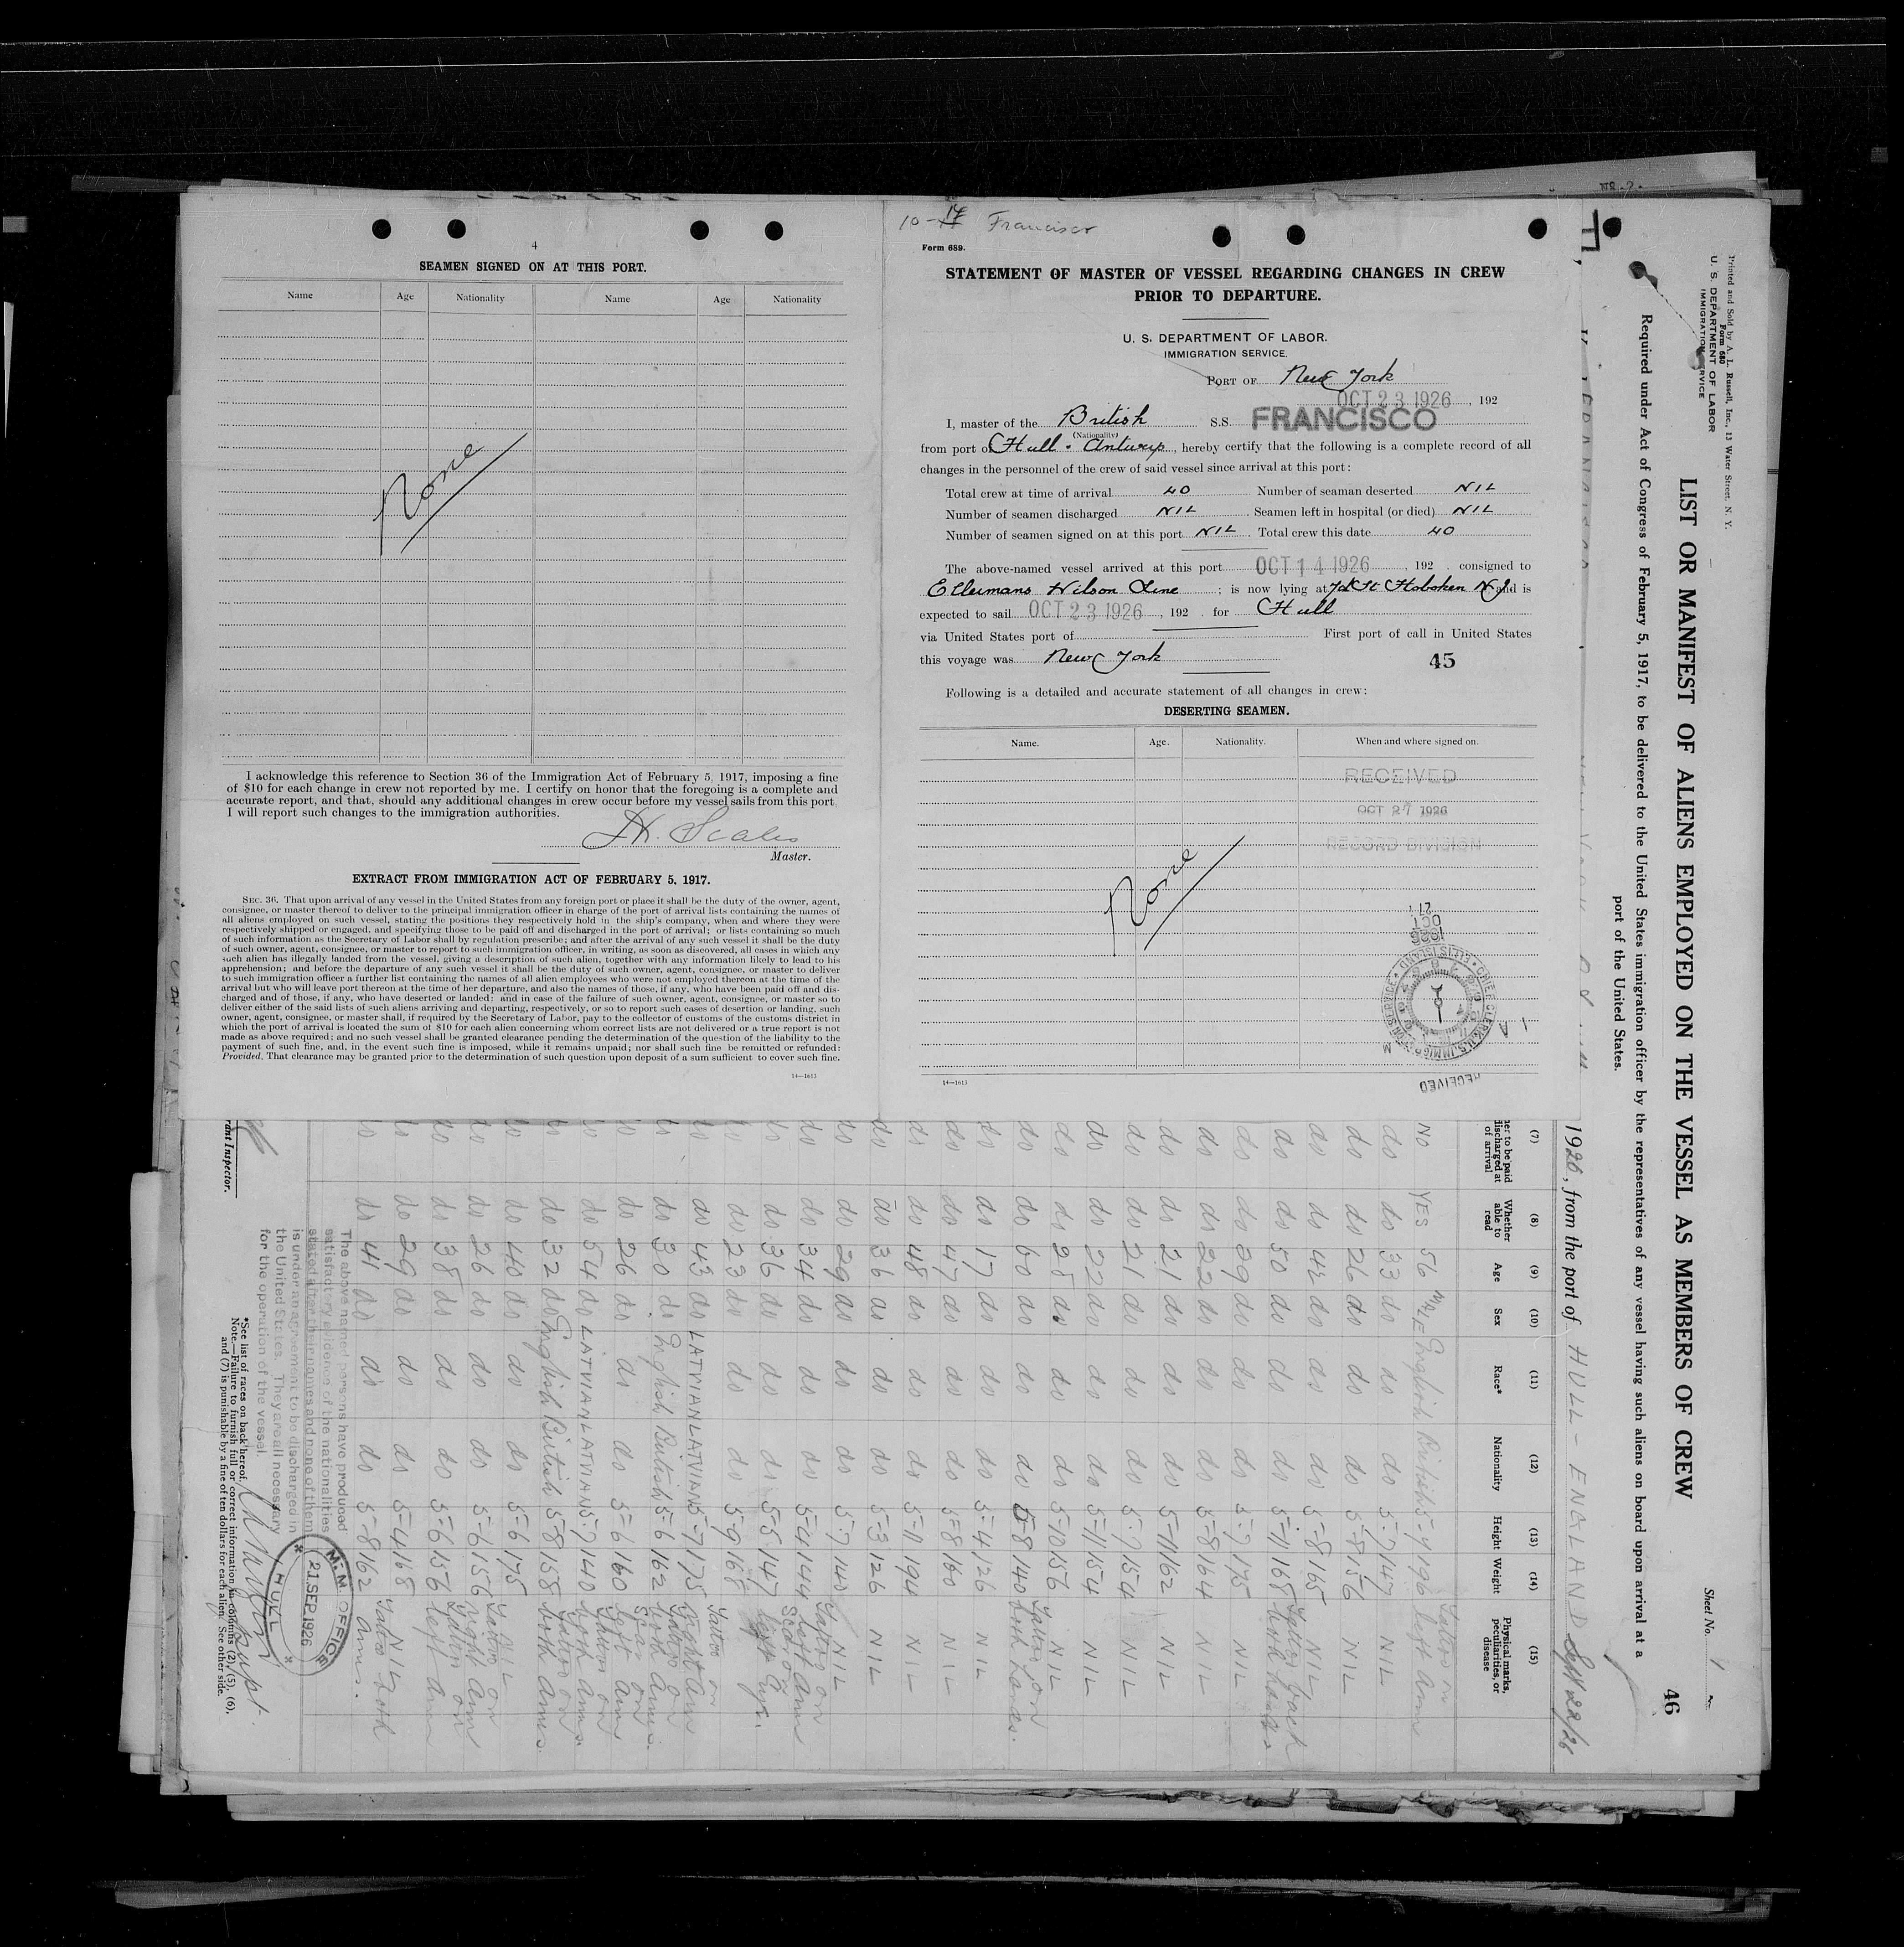 4
SEAMEN SIGNED ON AT THIS PORT.
Name Age Nationality Name Age Nationality
None
I acknowledge this reference to Section 36 of the Immigration Act of February 5, 1917, imposing a fine
of $10 for each change in crew not reported by me. I certify on honor that the foregoing is a complete and
accurate report, and that, should any additional changes in crew occur before my vessel sails from this port,
I will report such changes to the immigration authorities.
H. Scales
Master.
EXTRACT FROM IMMIGRATION ACT OF FEBRUARY 5, 1917.
SEC. 36. That upon arrival of any vessel in the United States from any foreign port or place it shall be the duty of the owner, agent,
consignee, or master thereof to deliver to the principal immigration officer in charge of the port of arrival lists containing the names of
all aliens employed on such vessel, stating the positions they respectively hold in the ship's company, when and where they were
respectively shipped or engaged, and specifying those to be paid off and discharged in the port of arrival; or lists containing so much
of such information as the Secretary of Labor shall by regulation prescribe; and after the arrival of any such vessel it shall be the duty
of such owner, agent, consignee, or master to report to such immigration officer, in writing, as soon as discovered, all cases in which any
such alien has illegally landed from the vessel, giving a description of such alien, together with any information likely to lead to his
apprehension; and before the departure of any such vessel it shall be the duty of such owner, agent, consignee, or master to deliver
to such immigration officer a further list containing the names of all alien employees who were not employed thereon at the time of the
arrival but who will leave port thereon at the time of her departure, and also the names of those, if any, who have been paid off and dis-
charged and of those, if any, who have deserted or landed; and in case of the failure of such owner, agent, consignee, or master so to
deliver either of the said lists of such aliens arriving and departing, respectively, or so to report such cases of desertion or landing, such
owner, agent, consignee, or master shall, if required by the Secretary of Labor, pay to the collector of customs of the customs district in
which the port of arrival is located the sum of $10 for each alien concerning whom correct lists are not delivered or a true report is not
made as above required; and no such vessel shall be granted clearance pending the determination of the question of the liability to the
payment of such fine, and, in the event such fine is imposed, while it remains unpaid; nor shall such fine be remitted or refunded:
Provided, That clearance may be granted prior to the determination of such question upon deposit of a sum sufficient to cover such fine.
14—1613
10-14 Francisco
Form 689.
STATEMENT OF MASTER OF VESSEL REGARDING CHANGES IN CREW
PRIOR TO DEPARTURE.
U. S. DEPARTMENT OF LABOR.
IMMIGRATION SERVICE.
PORT OF New York
OCT 23 1926, 192
I, master of the British S.S. FRANCISCO
(Nationality)
from port of Hull - Antwerp, hereby certify that the following is a complete record of all
changes in the personnel of the crew of said vessel since arrival at this port:
Total crew at time of arrival 40 Number of seaman deserted NIL
Number of seamen discharged NIL. Seamen left in hospital (or died) NIL
Number of seamen signed on at this port NIL. Total crew this date 40
The above-named vessel arrived at this port OCT 14 1926, 192 . consigned to
Ellermans Wilson Line; is now lying at 7th St Hoboken N.J. and is
expected to sail OCT 23 1926, 192 . for Hull
via United States port of First port of call in United States
this voyage was New York 45
Following is a detailed and accurate statement of all changes in crew:
DESERTING SEAMEN.
Name. Age. Nationality. When and where signed on.
RECEIVED
OCT 27 1926
RECORD DIVISION
None
1926
OCT
21
CHIEF CLERK U.S. IMMIGRATION SERVICE ELLIS ISLAND
RECEIVED
14—1613
Printed and Sold by A. L. Russell, Inc., 13 Water Street, N. Y.
Form 680
U. S. DEPARTMENT OF LABOR
IMMIGRATION SERVICE
Sheet No. 1
46
LIST OR MANIFEST OF ALIENS EMPLOYED ON THE VESSEL AS MEMBERS OF CREW
Required under Act of Congress of February 5, 1917, to be delivered to the United States immigration officer by the representatives of any vessel having such aliens on board upon arrival at a
port of the United States.
1926, from the port of HULL - ENGLAND Sept 22/26
(7) (8) (9) (10) (11) (12) (13) (14) (15)
her to be paid discharged at of arrival Whether able to read Age Sex Race* Nationality Height Weight Physical marks, peculiarities, or disease
NO YES 56 Male English British 5-9 196 Tattoo on left arm
do do 33 do do do 5-7 147 NIL
do do 26 do do do 5-8 156 NIL
do do 42 do do do 5-8 165 NIL
do do 50 do do do 5-11 168 Tattoo back both hands
do do 29 do do do 5-7 175 NIL
do do 22 do do do 5-8 164 NIL
do do 21 do do do 5-11 162 NIL
do do 21 do do do 5-7 154 NIL
do do 22 do do do 5-11 154 NIL
do do 28 do do do 5-10 156 NIL
do do 60 do do do 5-8 140 Tattoo on both hands.
do do 17 do do do 5-4 126 NIL
do do 47 do do do 5-8 160 NIL
do do 48 do do do 5-11 194 NIL
do do 36 do do do 5-3 126 NIL
do do 29 do do do 5-7 140 NIL
do do 34 do do do 5-4 144 Tattoo on left arm
do do 36 do do do 5-5 147 Scar on left eye.
do do 23 do do do 5-9 168
do do 43 do LATVIAN LATVIAN 5-7 175 Tattoo on right arm
do do 30 do English British 5-6 162 Tattoo on both arms.
do do 26 do do do 5-6 160 Scar on left arm
do do 54 do LATVIAN LATVIAN 5-7 140 Tattoo on both arms.
do do 32 do English British 5-8 158 Tattoo on both arms.
do do 40 do do do 5-6 175 NIL
do do 26 do do do 5-6 156 Tattoo on right arm
do do 38 do do do 5-6 156 Tattoo on left arm
do do 29 do do do 5-4 168 NIL
do do 41 do do do 5-8 162 Tattoo both arms.
The above named persons have produced
satisfactory evidence of the nationalities
stated after their names and none of them
is under an agreement to be discharged in
the United States. They are all necessary
for the operation of the vessel.
Supt.
M.M. OFFICE
21 SEP 1926
HULL
rant Inspector.
*See list of races on back hereof.
Note.—Failure to furnish full or correct information in columns (2), (5), (6),
and (7) is punishable by a fine of ten dollars for each alien. See other side.